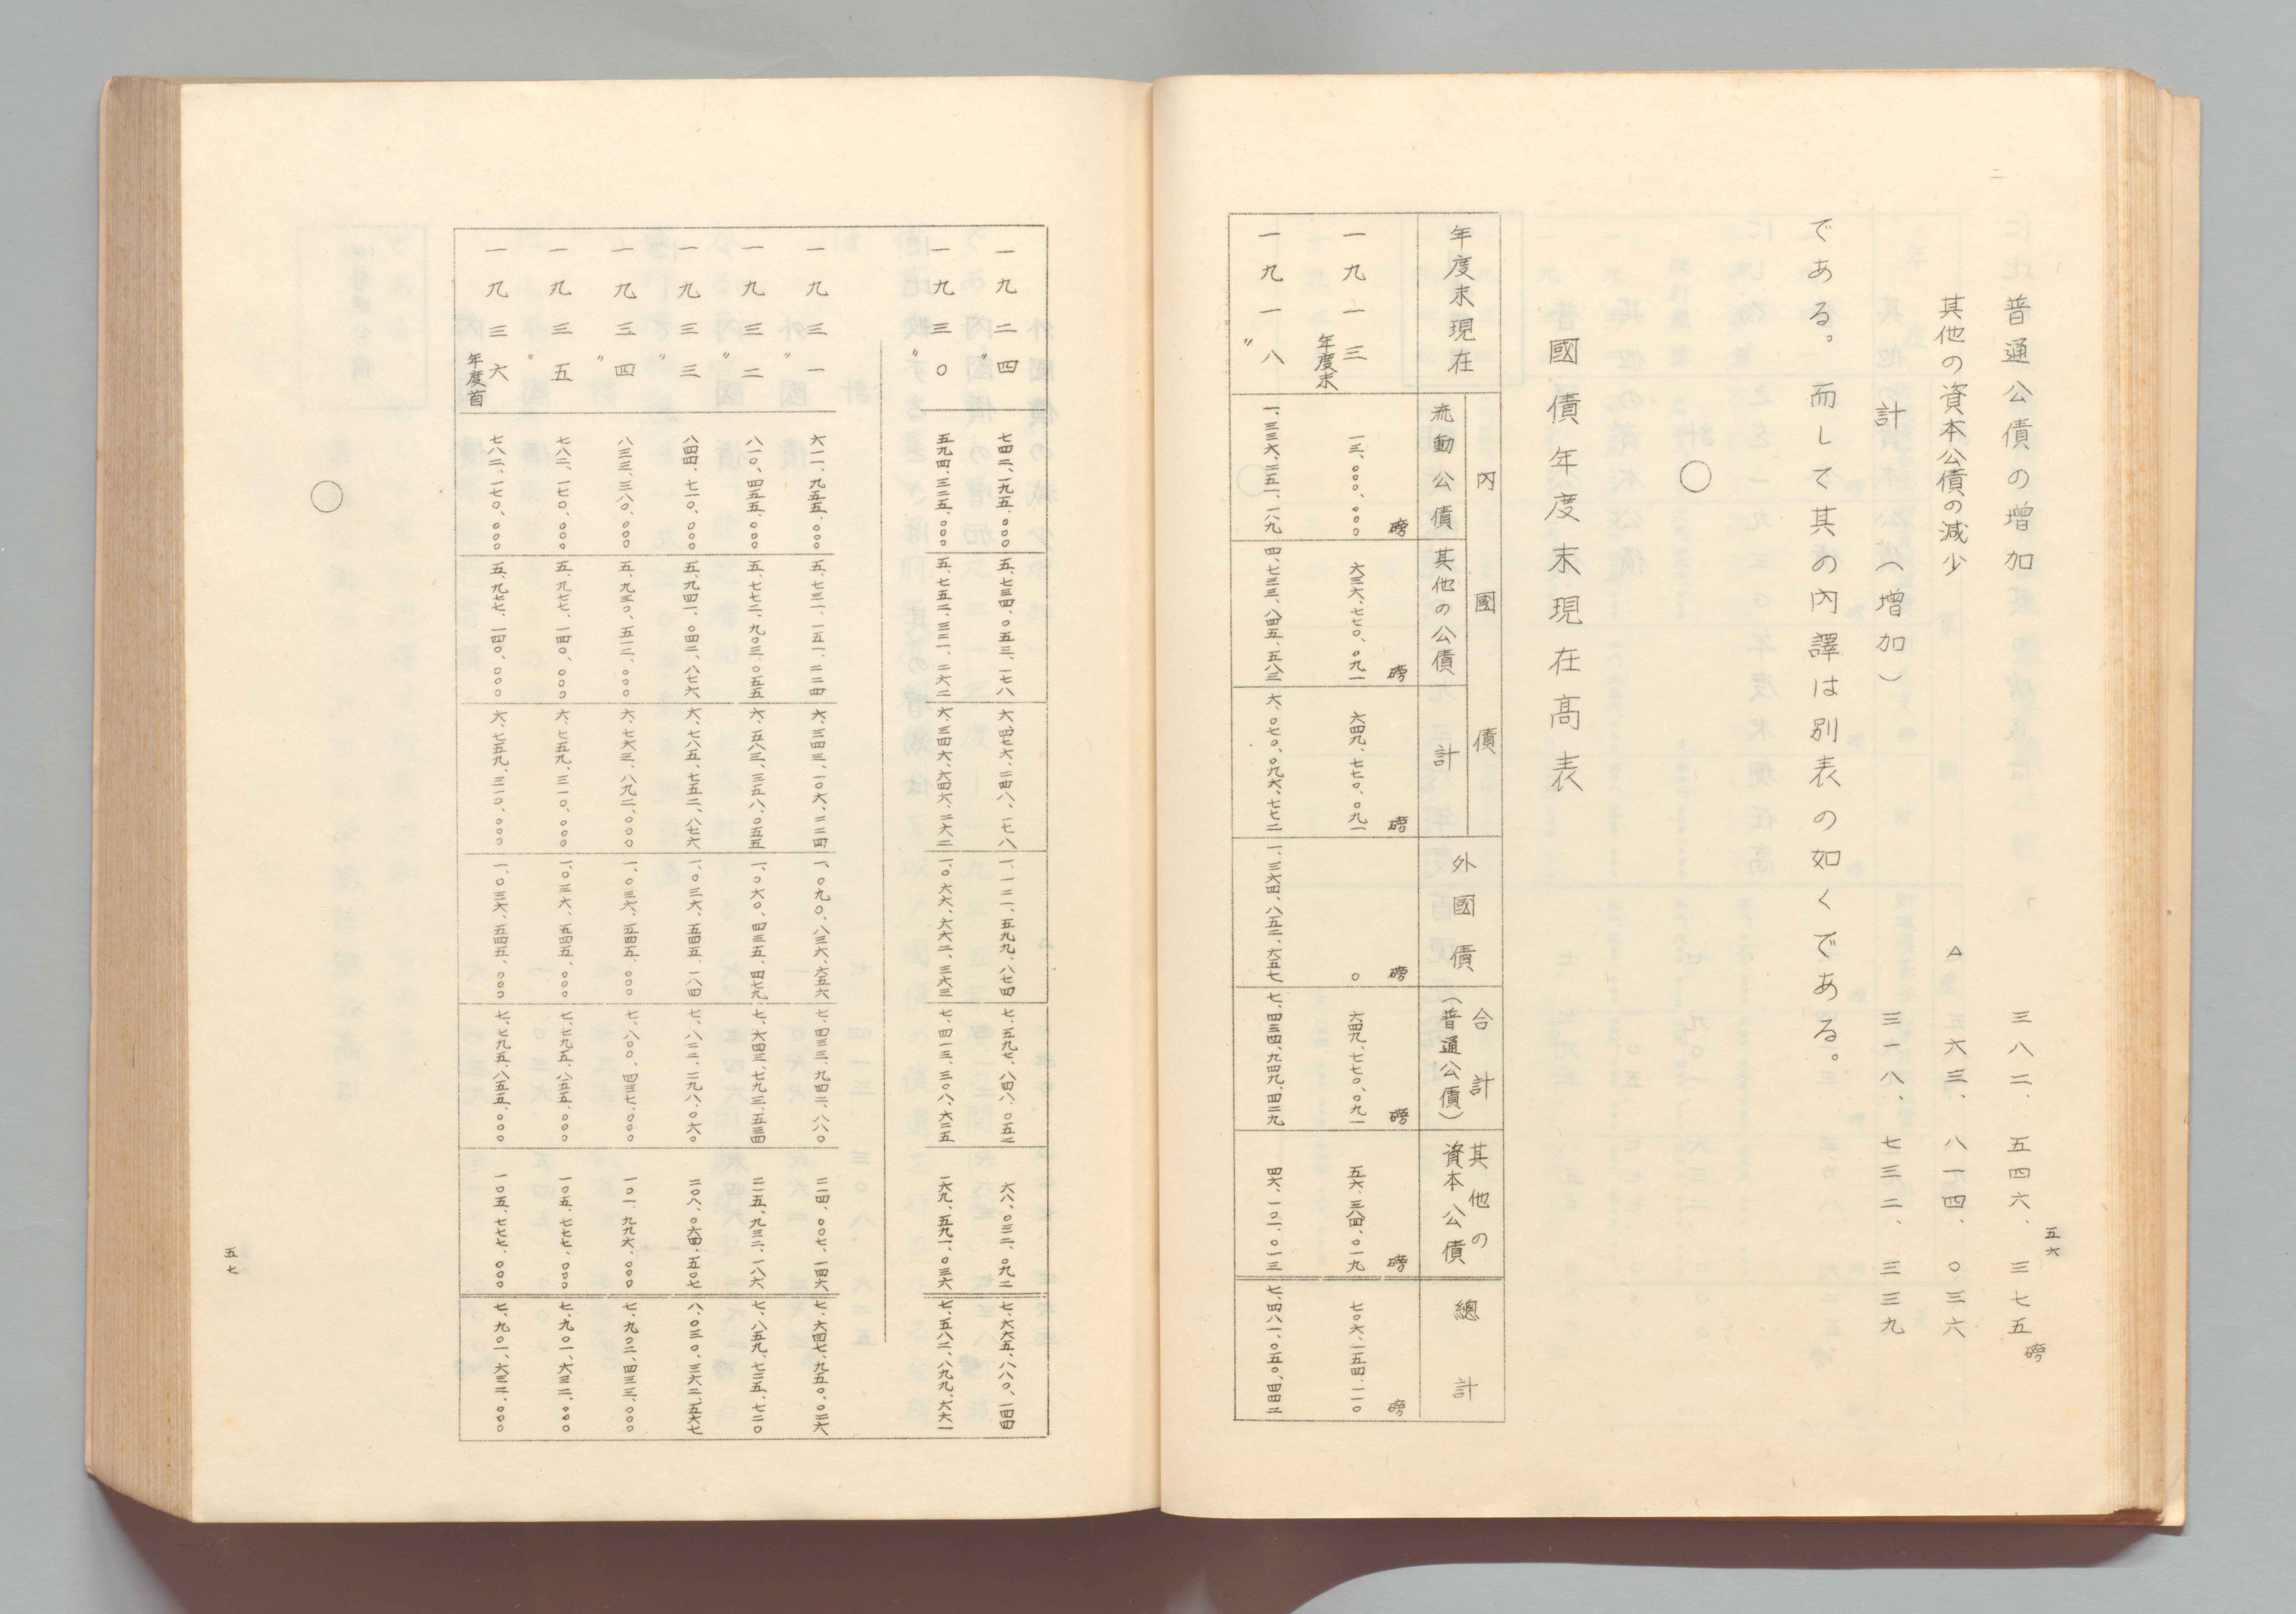 五六
普通公債の増加 三八二、五四六、三七五磅
其他の資本公債の減少 △ 六三、八一四、〇三六
計（増加） 三一八、七三二、三三九
である。而して其の内譯は別表の如くである。
〇
國債年度末現在高表
年度末現在 内國債 流動公債 其他の公債 計 外國債 合計（普通公債） 其他の資本公債 總計
磅 磅 磅 磅 磅 磅 磅
一九一三年度末 一三、〇〇〇、〇〇〇 六三六、七七〇、〇九一 六四九、七七〇、〇九一 〇 六四九、七七〇、〇九一 五六、三八四、〇一九 七〇六、一五四、一一〇
一九一八〃 一、三三六、二五一、一八九 四、七三三、八四五、五八三 六、〇七〇、〇九六、七七二 一、三六四、八五二、六五七 七、四三四、九四九、四二九 四六、一〇一、〇一三 七、四八一、〇五〇、四四二
一九二四〃 七四二、一九五、〇〇〇 五、七三四、〇五三、一七八 六、四七六、二四八、一七八 一、一二一、五九九、八七四 七、五九七、八四八、〇五二 六八、〇三二、〇九二 七、六六五、八八〇、一四四
一九三〇〃 五九四、三二五、〇〇〇 五、七五二、三二一、二六二 六、三四六、六四六、二六二 一、〇六六、六六二、三六三 七、四一三、三〇八、六二五 一六九、五九一、〇三六 七、五八二、八九九、六六一
一九三一〃 六一一、九五五、〇〇〇 五、七三一、一五一、二二四 六、三四三、一〇六、二二四 一、〇九〇、八三六、六五六 七、四三三、九四二、八八〇 二一四、〇〇七、一四六 七、六四七、九五〇、〇二六
一九三二〃 八一〇、四五五、〇〇〇 五、七七二、九〇三、〇五五 六、五八三、三五八、〇五五 一、〇六〇、四三五、四七九 七、六四三、七九三、五三四 二一五、九三二、一八六 七、八五九、七二五、七二〇
一九三三〃 八四四、七一〇、〇〇〇 五、九四一、〇四二、八七六 六、七八五、七五二、八七六 一、〇三六、五四五、一八四 七、八二二、二九八、〇六〇 二〇八、〇六四、五〇七 八、〇三〇、三六二、五六七
一九三四〃 八三三、三八〇、〇〇〇 五、九三〇、五一二、〇〇〇 六、七六三、八九二、〇〇〇 一、〇三六、五四五、〇〇〇 七、八〇〇、四三七、〇〇〇 一〇一、九九六、〇〇〇 七、九〇二、四三三、〇〇〇
一九三五〃 七八二、一七〇、〇〇〇 五、九七七、一四〇、〇〇〇 六、七五九、三一〇、〇〇〇 一、〇三六、五四五、〇〇〇 七、七九五、八五五、〇〇〇 一〇五、七七七、〇〇〇 七、九〇一、六三二、〇〇〇
一九三六年度首 七八二、一七〇、〇〇〇 五、九七七、一四〇、〇〇〇 六、七五九、三一〇、〇〇〇 一、〇三六、五四五、〇〇〇 七、七九五、八五五、〇〇〇 一〇五、七七七、〇〇〇 七、九〇一、六三二、〇〇〇
〇
五七